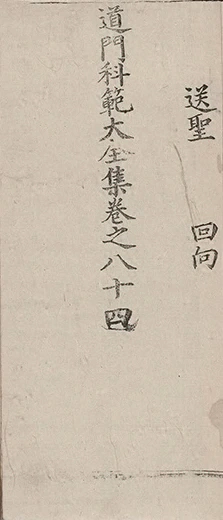 送聖　回向
道門科範大全集卷之八十四